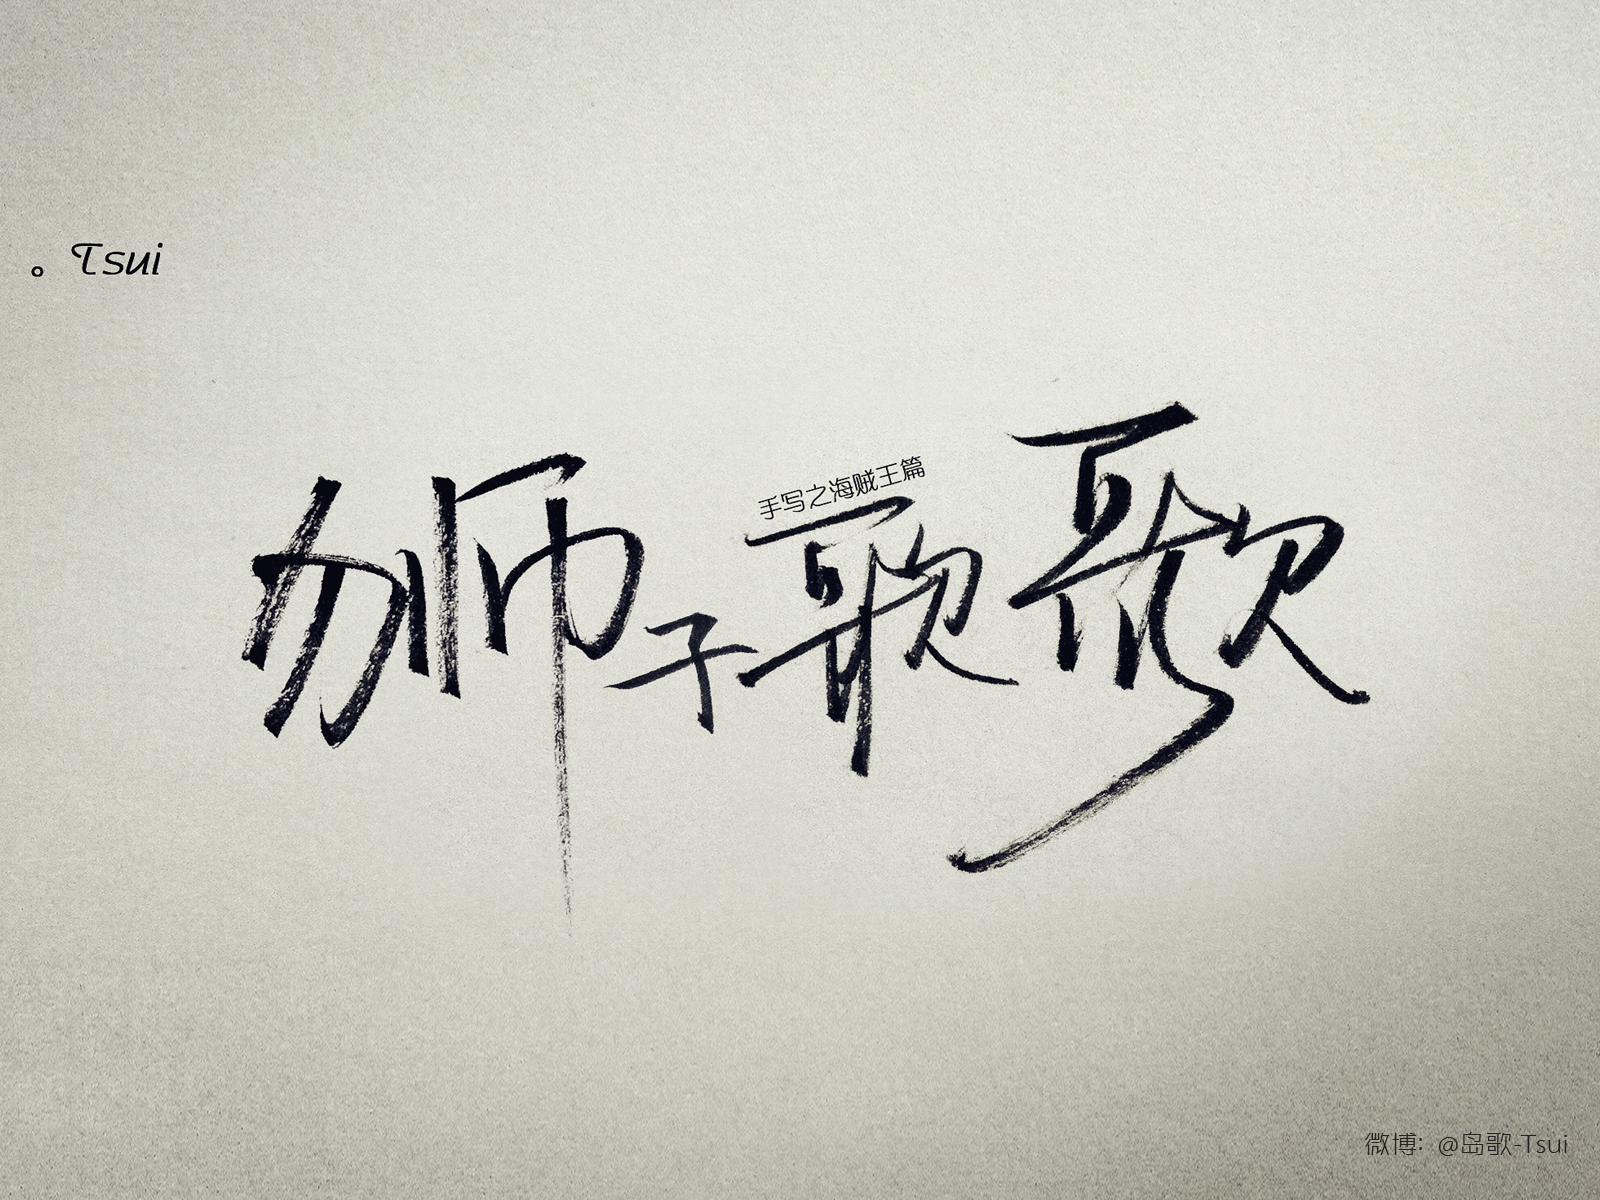 。Tsui
手写之海贼王篇
狮子歌歌
微博: @岛歌-Tsui